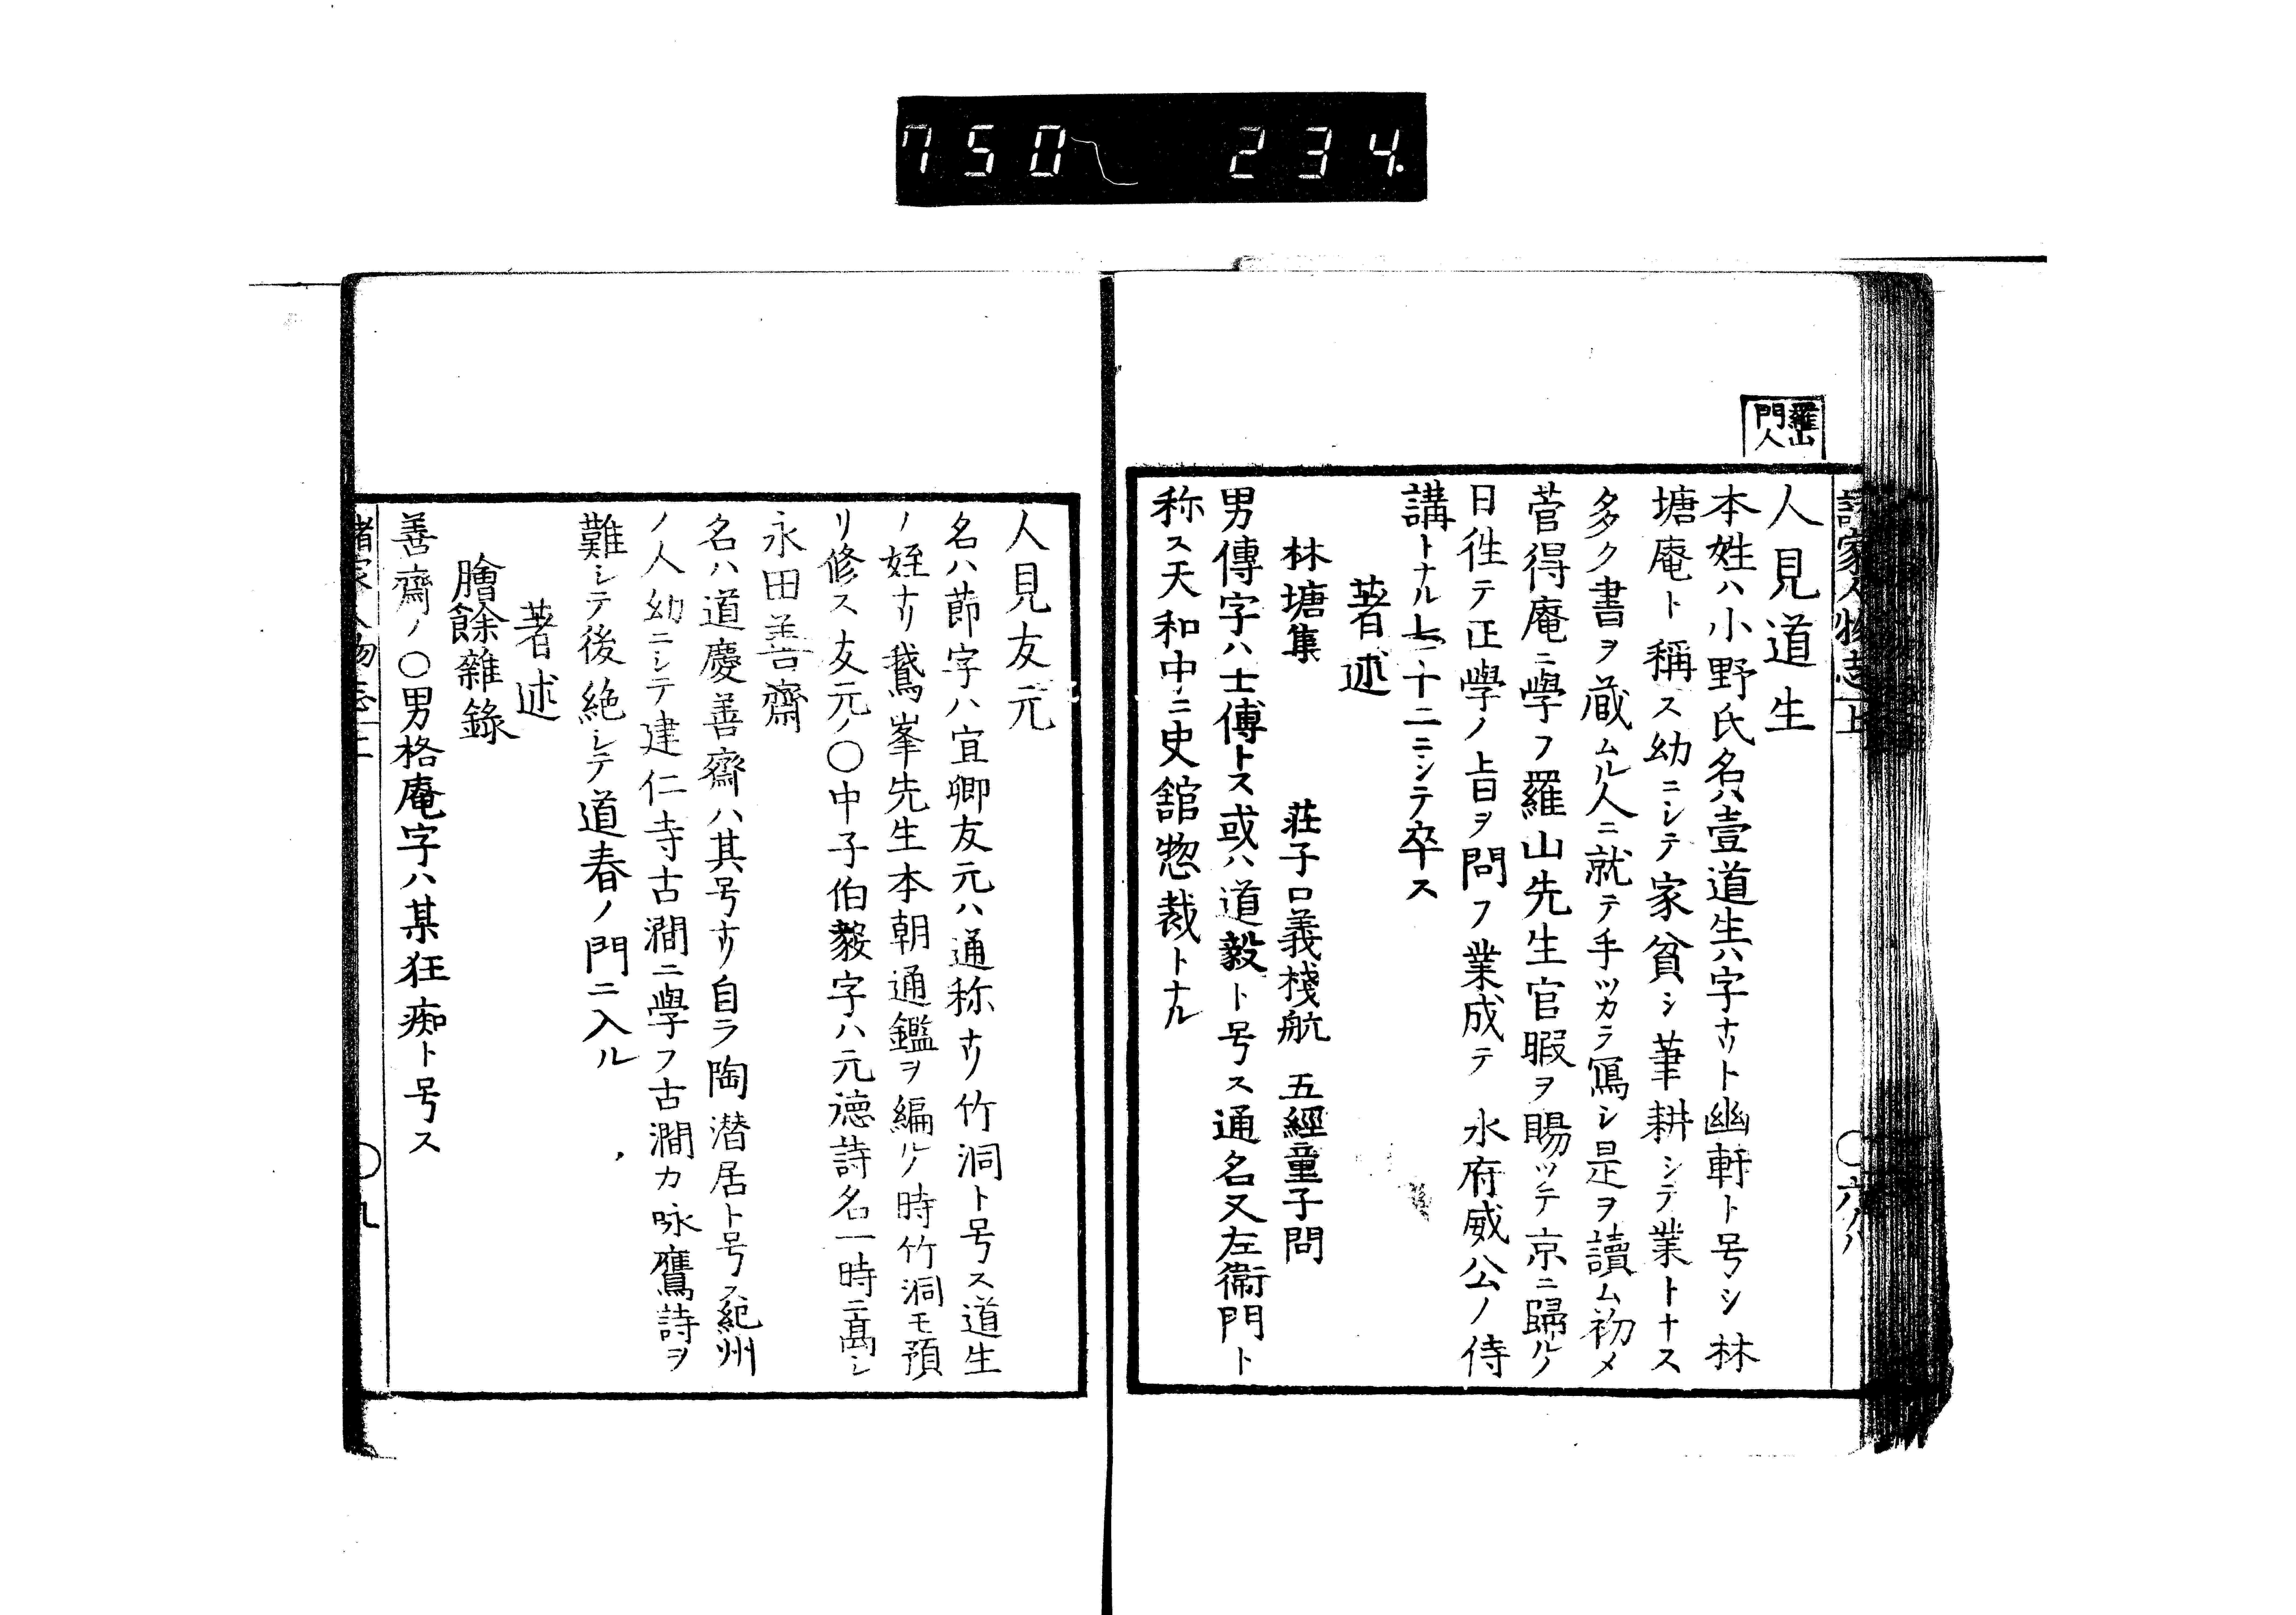 750 234.
羅山
門人
諸家人物志 上
人見道生
本姓ハ小野氏名ハ壹道生ハ字ナリト幽軒ト号シ林
塘庵ト稱ス幼ニシテ家貧シ筆耕シテ業トナス
多ク書ヲ蔵ムル人ニ就テ手ツカラ寫シ是ヲ讀ム初メ
菅得庵ニ學フ羅山先生官暇ヲ賜ツテ京ニ歸ルノ
日徃テ正學ノ旨ヲ問フ業成テ 水府威公ノ侍
講トナル七十二ニシテ卒ス
著述
林塘集 荘子口義棧航 五經童子問
男傳字ハ士傅トス或ハ道毅ト号ス通名又左衞門ト
称ス天和中ニ史舘惣裁トナル
人見友元
名ハ節字ハ宜卿友元ハ通称ナリ竹洞ト号ス道生
ノ姪ナリ鵞峯先生本朝通鑑ヲ編ルノ時竹洞モ預
リ修ス友元ノ〇中子伯毅字ハ元德詩名一時ニ高シ
永田善齋
名ハ道慶善齋ハ其号ナリ自ラ陶潜居ト号ス紀州
ノ人幼ニシテ建仁寺古澗ニ學フ古澗カ咏鷹詩ヲ
難シテ後絶シテ道春ノ門ニ入ル
著述
膾餘雜錄
善齋ノ〇男格庵字ハ某狂痴ト号ス
諸家人物志上
〇九